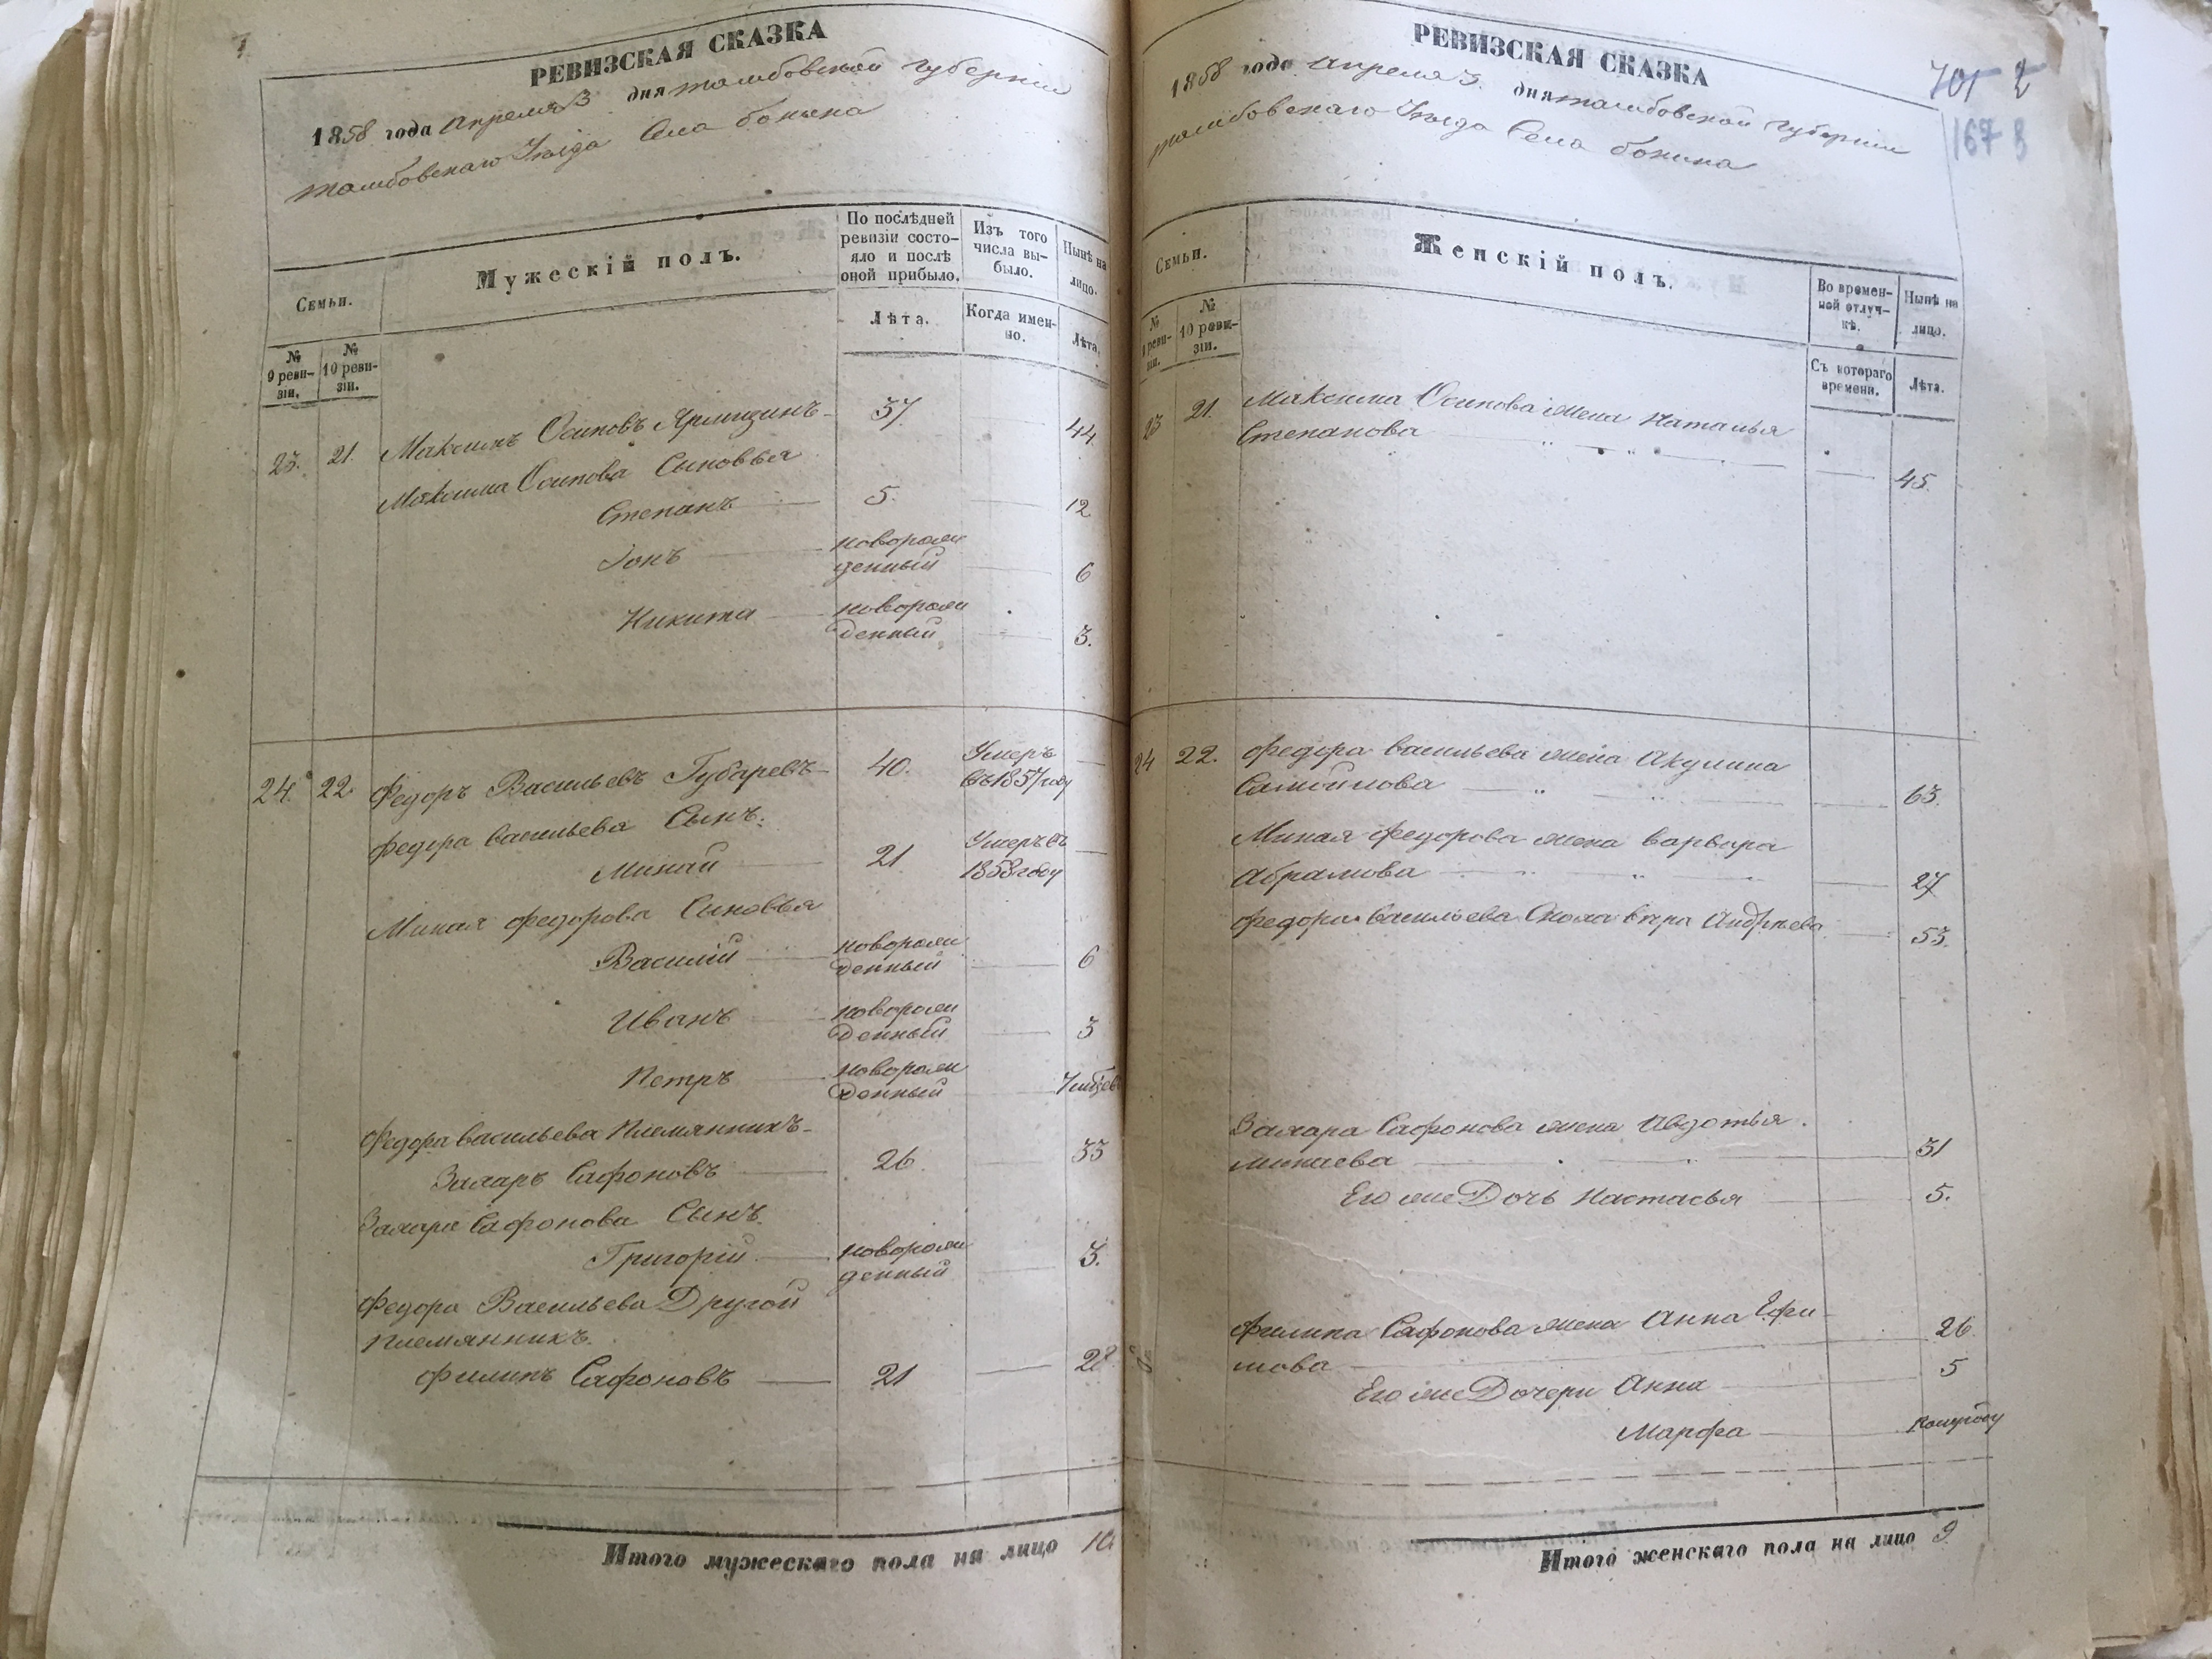 7
РЕВИЗСКАЯ СКАЗКА
1858 года Апреля 3 дня тамбовской губернии
тамбовскаго Уезда Села бокина
Семьи.
Мужескій полъ.
По послѣдней ревизіи состо-
яло и послѣ
оной прибыло.
Изъ того
числа вы-
было.
Нынѣ на
лицо.
№
9 реви-
зіи.
№
10 реви-
зіи.
Лѣта.
Когда имен-
но.
Лѣта.
23. 21. Максимъ Осиповъ 37. 44
Максима Осипова Сыновья
Степанъ 5. 12
Іонъ новорож
денный 6
Никита новорож
денный 3.
24. 22 Федоръ Васильевъ Губаревъ 40. Умеръ
въ 1857 году
федора васильева Сынъ.
Минай 21. Умеръ въ
1858 году
Миная федорова Сыновья
Василій новорож
денный 6
Иванъ новорож
денный 3
Петръ новорож
денный 7
Федора васильева Племянникъ
Захаръ Сафоновъ 26. 33
Захара Сафонова Сынъ.
Григорій новорож
денный 3.
Федора Васильева Другой
племянникъ.
филипъ Сафоновъ 21 28
Итого мужескаго пола на лицо 10
РЕВИЗСКАЯ СКАЗКА
1858 года Апреля 3. дня тамбовской губернии
тамбовскаго Уезда Села бокина
701 2
167
Семьи.
Женскій полъ.
Во времен-
ной отлуч-
кѣ.
Нынѣ на
лицо.
№
реви-
зіи.
№
10 реви-
зіи.
Съ котораго
времени.
Лѣта.
23 21. Максима Осипова жена Наталья
Степанова 45.
24 22. федора васильева жена Акулина
Самойлова 63.
Миная федорова жена варвара
Абрамова 27
федора васильева Сноха вѣра Андреева 53.
Захара Сафонова жена Авдотья
минаева 31
Его же Дочь Настасья 5.
филипа Сафонова жена Анна Ефи
мова 26
Его же Дочери Анна 5
Марфа полугоду
Итого женскаго пола на лицо 9